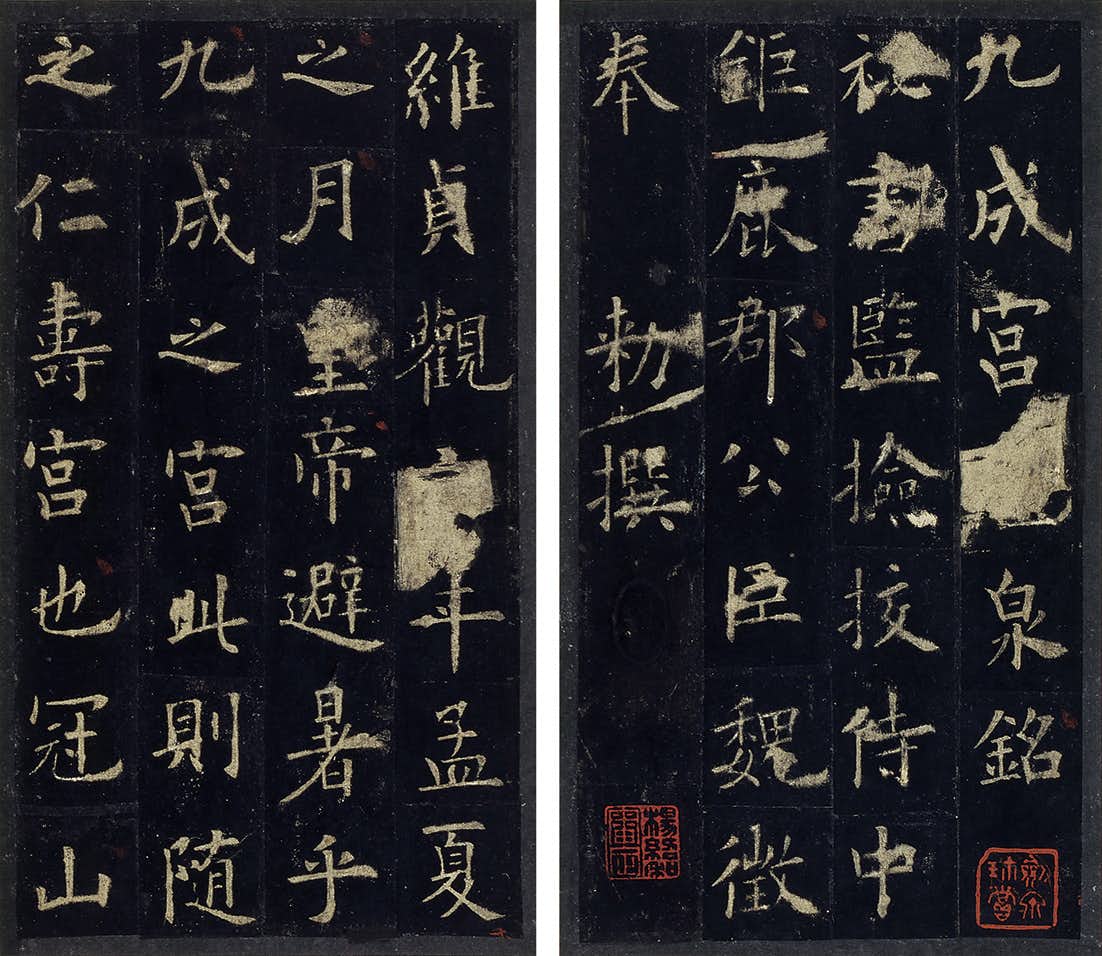 九成宮泉銘
祕書監撿挍侍中
鉅鹿郡公臣魏徵
奉勑撰
維貞觀年孟夏
之月皇帝避暑乎
九成之宮此則隨
之仁壽宮也冠山